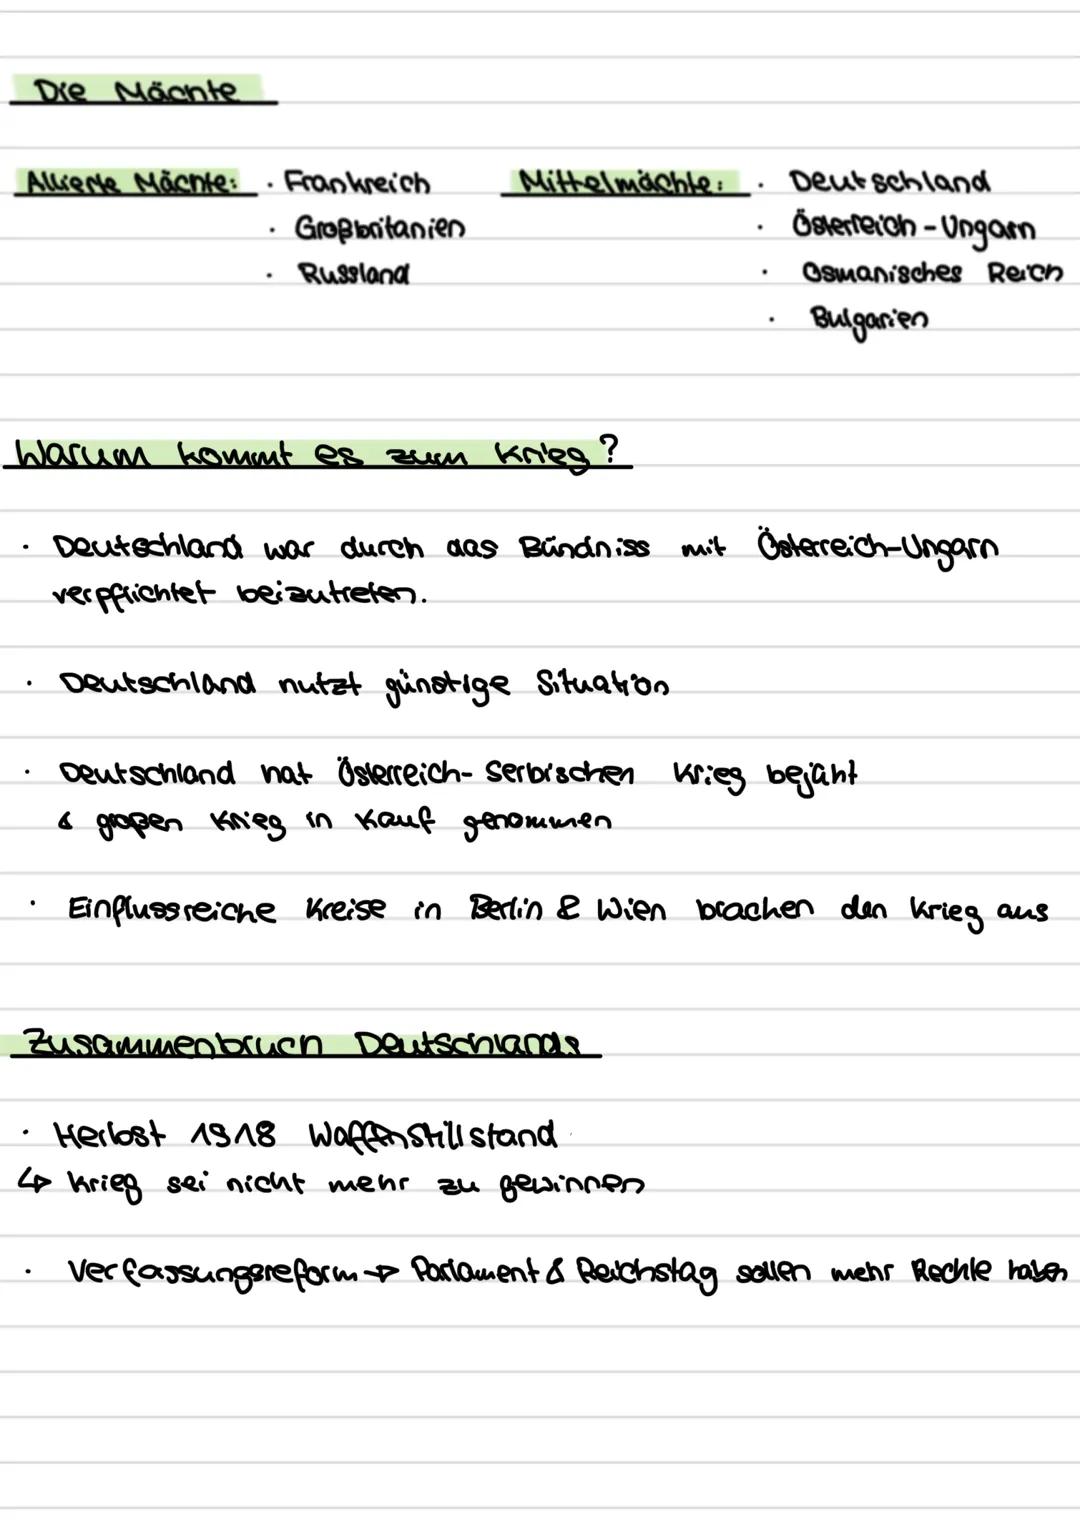 Die Mächte
Alliierte Mächte: · Frankreich Mittelmächte: · Deutschland
· Großbritanien · Österreich-Ungarn
· Russland · Osmanisches Reich
· Bulgarien
Warum kommt es zum Krieg?
· Deutschland war durch das Bündniss mit Österreich-Ungarn
verpflichtet beizutreten.
· Deutschland nutzt günstige Situation
· Deutschland hat Österreich-Serbischen Krieg bejaht
& großen Krieg in Kauf genommen
· Einflussreiche Kreise in Berlin & Wien brachen den Krieg aus
Zusammenbruch Deutschlands
· Herbst 1918 Waffenstillstand
↳ Krieg sei nicht mehr zu gewinnen
· Verfassungsreform → Parlament & Reichstag sollen mehr Rechte haben